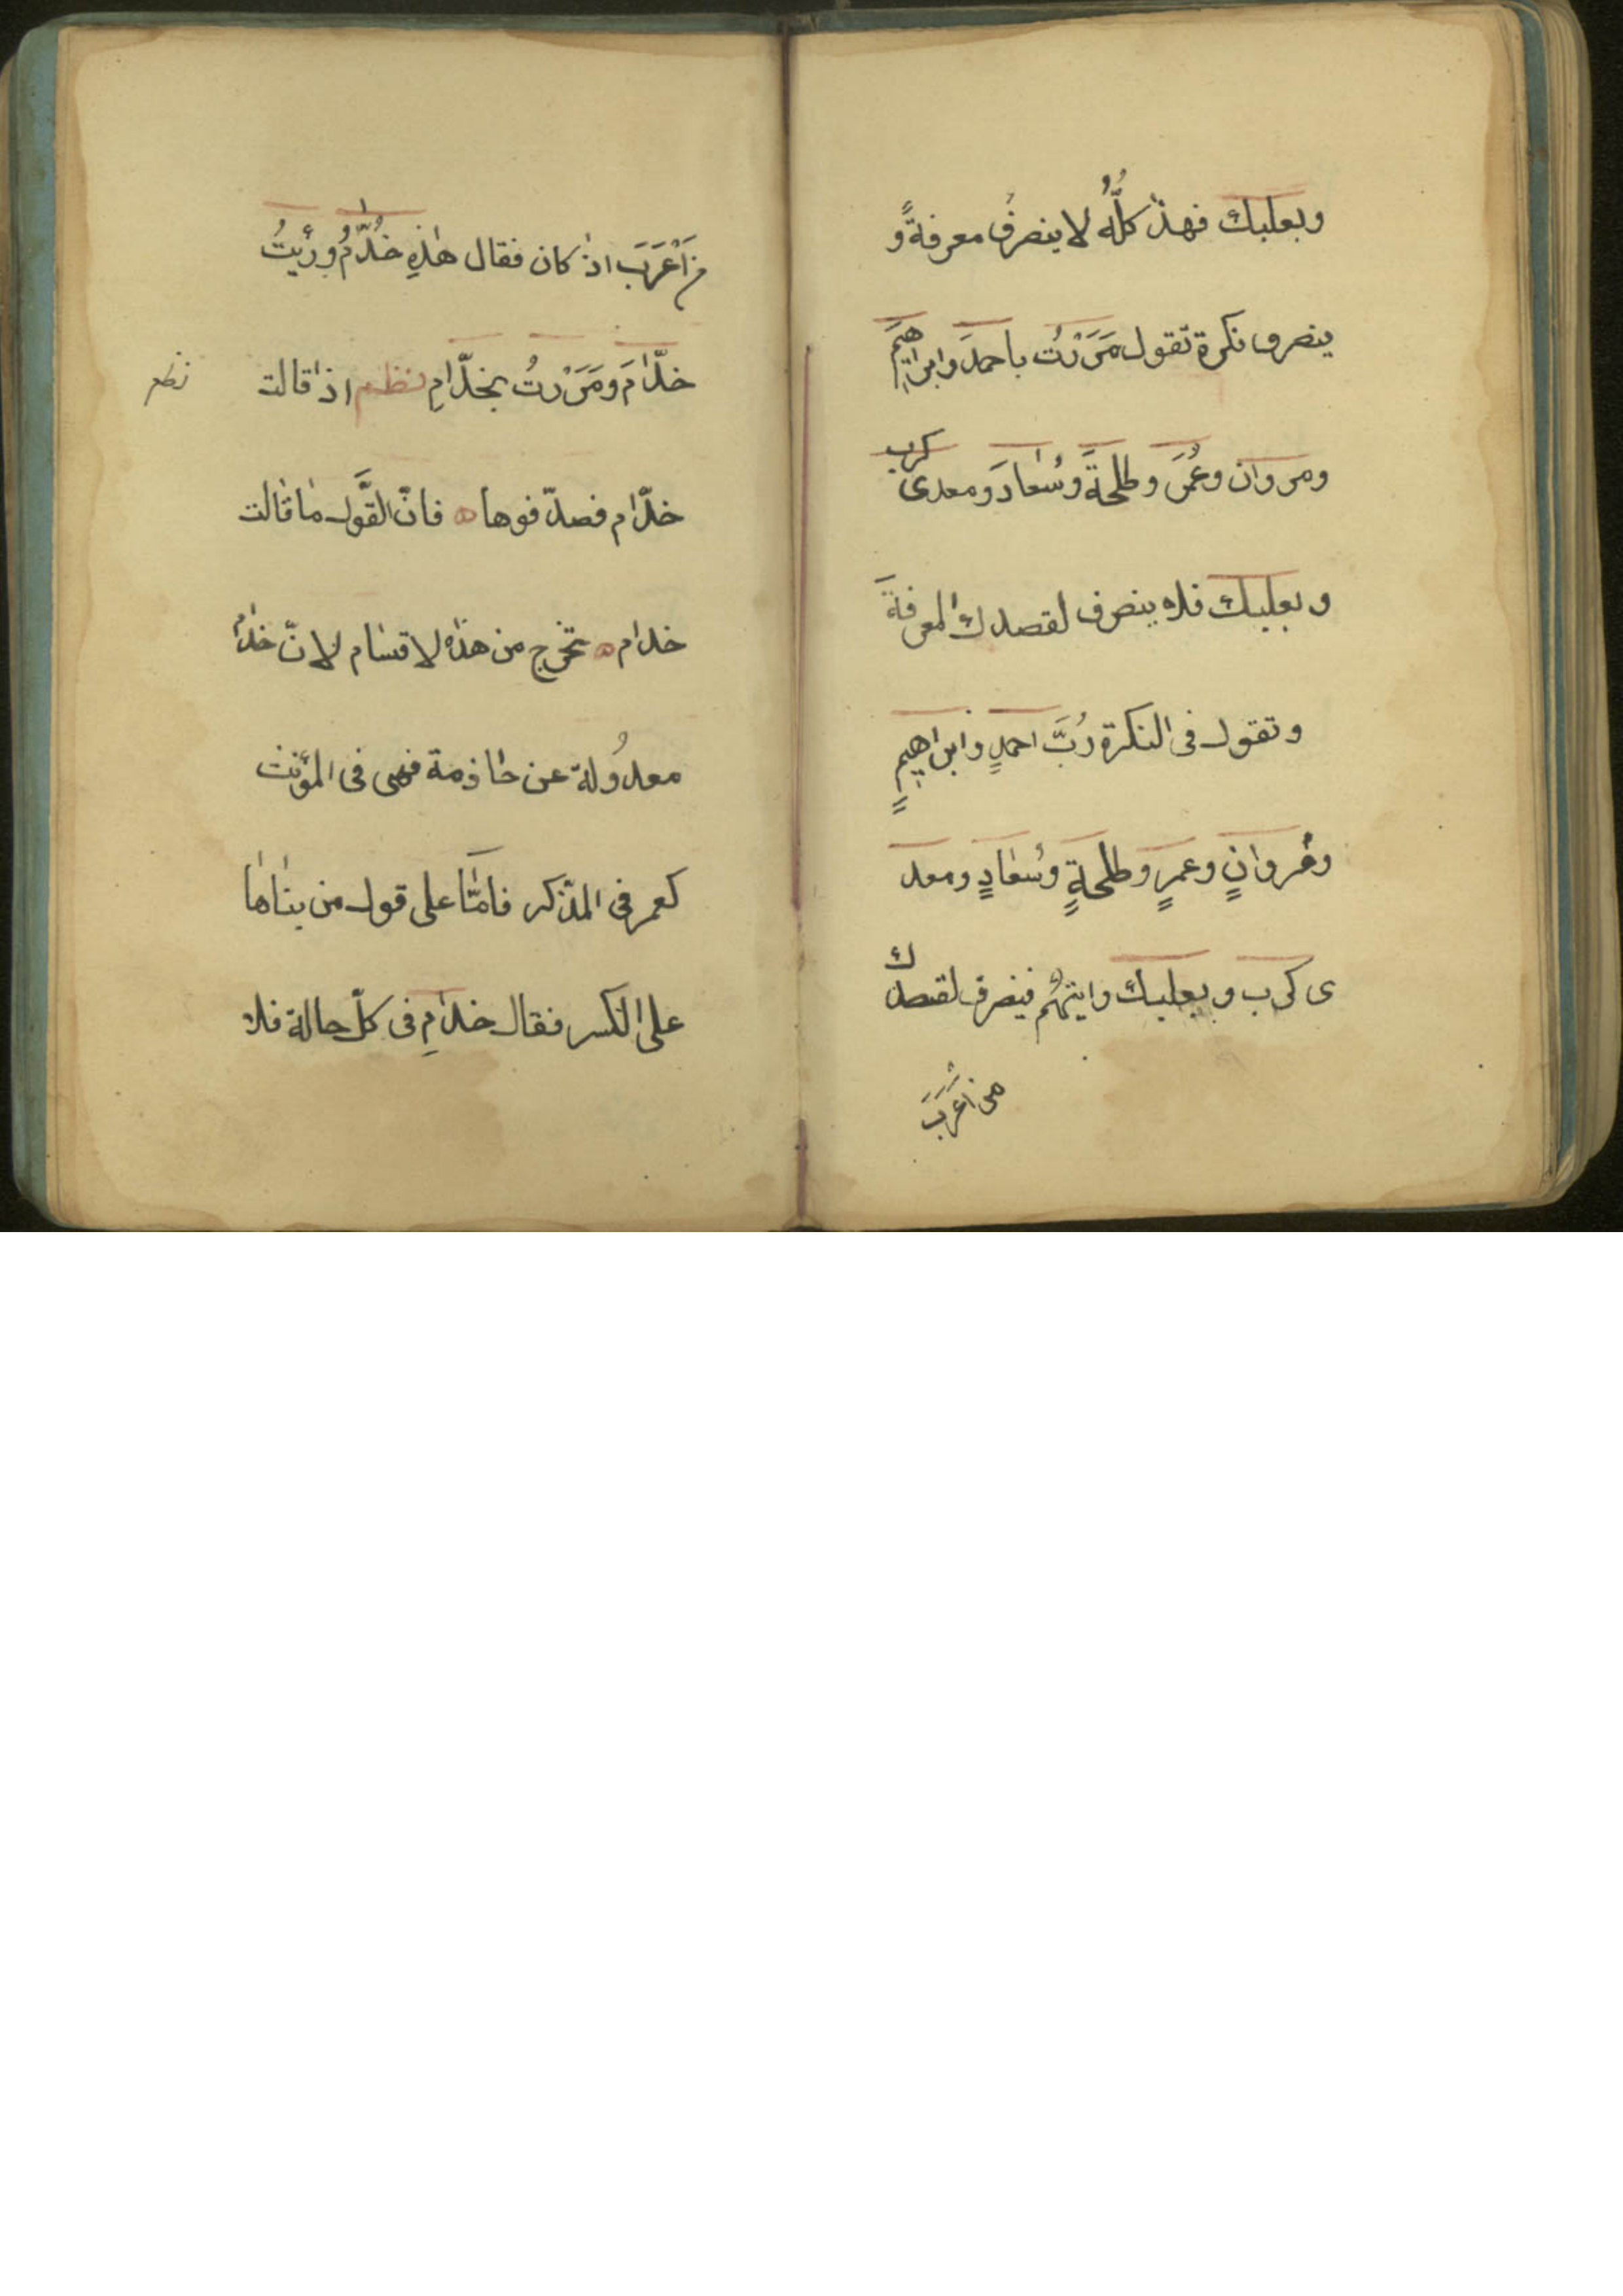 وبعلبك فهذا كلُّه لا ينصرفُ معرفةً و
ينصرف نكرة تقول مَرَرْتُ باحمدَ وابراهيمَ
ومروان وعُمَرَ وطلحةَ وسُعادَ ومعدى كرب
وبعلبك فلا ينصرف لقصدك المعرفةَ
وتقول فى النكرة رُبَّ احمدٍ وابراهيمٍ
ومروانٍ وعمرٍ وطلحةٍ وسُعادٍ ومعد
ى كرب وبعلبك وايتهُم فينصرف لقصدك
من اَعْرَبَ
من اَعْرَبَ اذا كان فقال هٰذِهِ خُدّامُ ورئيتُ
خدّامَ ومَرَرْتُ بخدّامِ نظم اذا قالت
نظم
خدّام فصدّقوها ه فانّ القَول ما قالت
خدام ه تخرج من هذه لاقسام لانّ خدام
معدُولة عن حاذمة فهى فى المؤنث
كعمر فى المذكر فامّا على قول من بناها
على الكسر فقال خدامِ فى كلّ حالة فلا